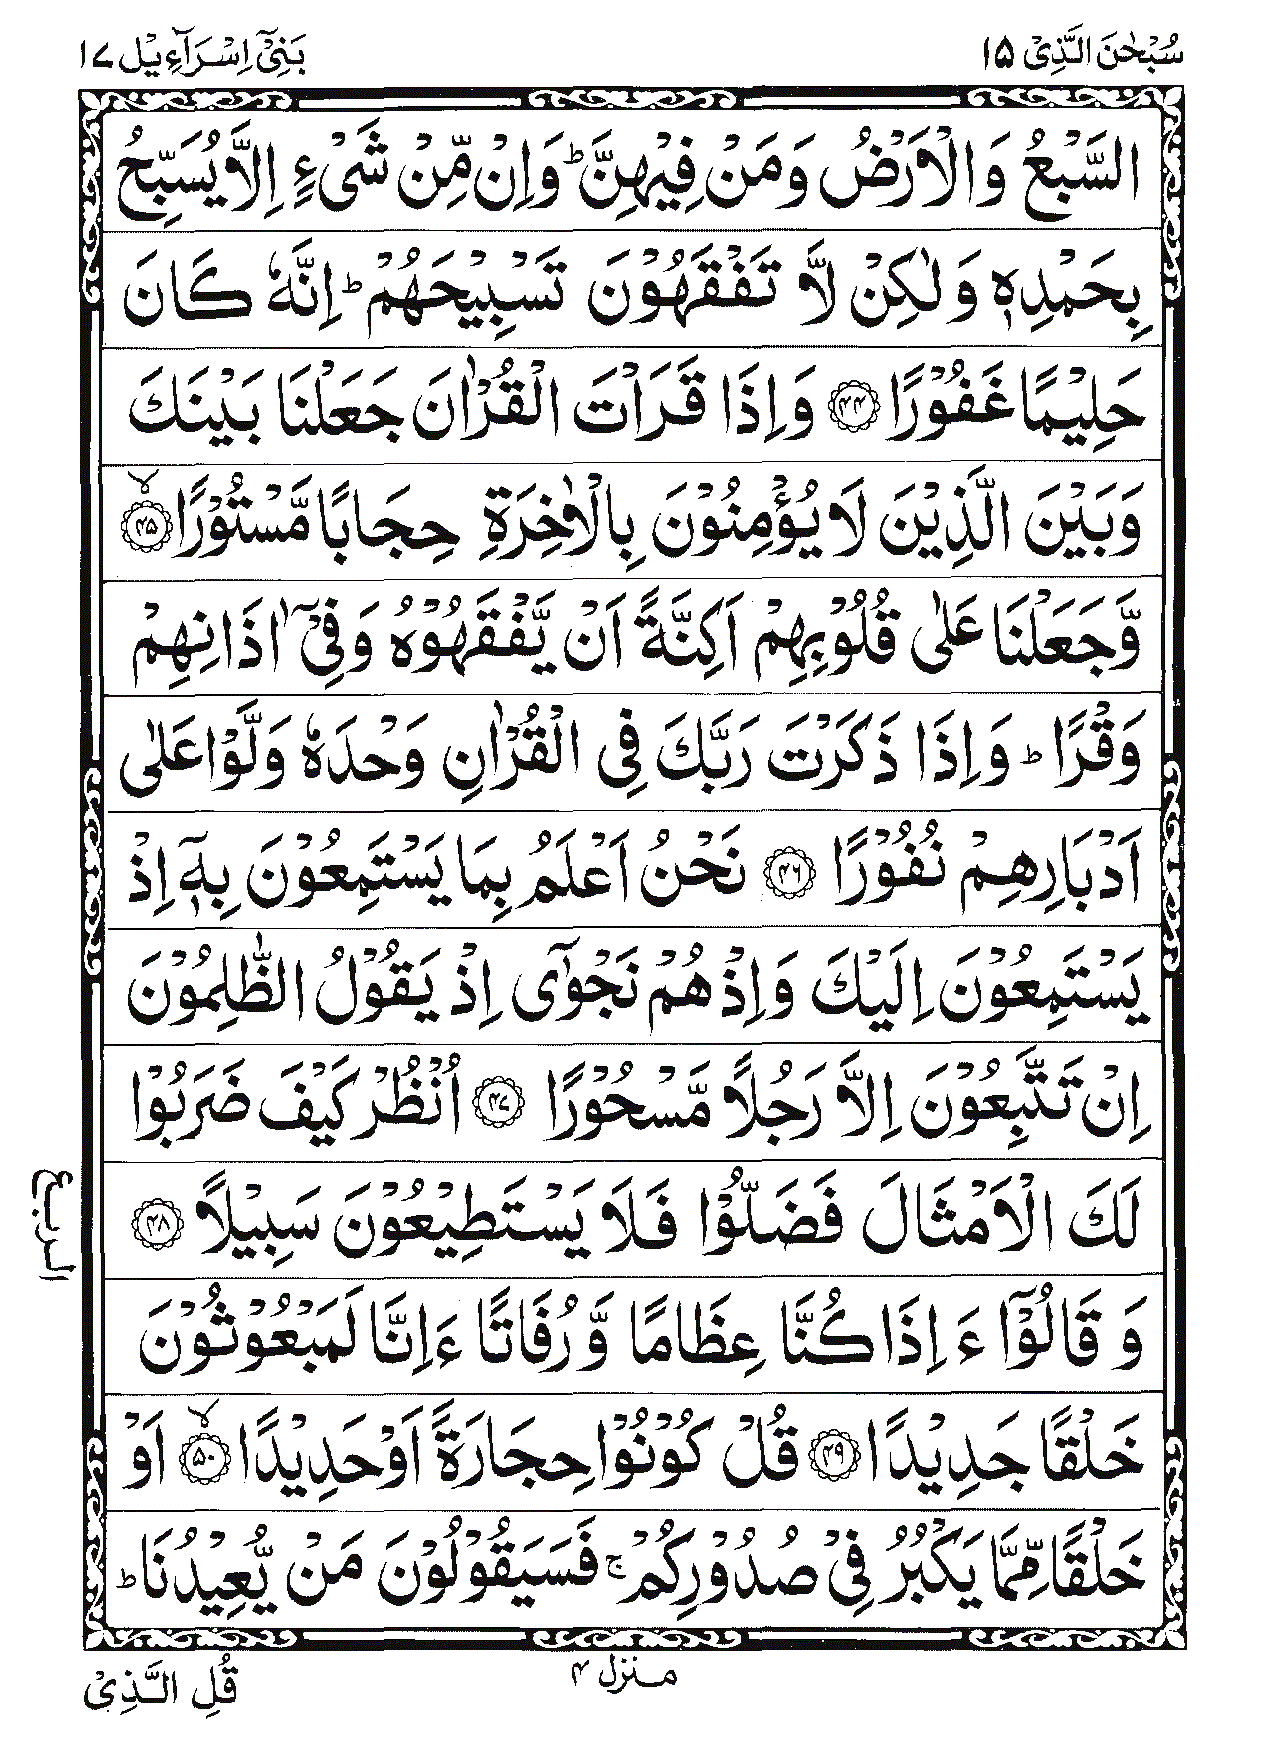 سُبْحٰنَ الَّذِیْۤ ۱۵
بَنِیْۤ اِسْرَآءِیْل ۱۷
السَّبْعُ وَالْاَرْضُ وَمَنْ فِیْهِنَّ ؕ وَاِنْ مِّنْ شَیْءٍ اِلَّا یُسَبِّحُ
بِحَمْدِهٖ وَلٰكِنْ لَّا تَفْقَهُوْنَ تَسْبِیْحَهُمْ ؕ اِنَّهٗ كَانَ
حَلِیْمًا غَفُوْرًا ﴿۴۴﴾ وَاِذَا قَرَاْتَ الْقُرْاٰنَ جَعَلْنَا بَیْنَكَ
وَبَیْنَ الَّذِیْنَ لَا یُؤْمِنُوْنَ بِالْاٰخِرَةِ حِجَابًا مَّسْتُوْرًا ﴿۴۵﴾ۙ
وَّجَعَلْنَا عَلٰی قُلُوْبِهِمْ اَكِنَّةً اَنْ یَّفْقَهُوْهُ وَفِیْۤ اٰذَانِهِمْ
وَقْرًا ؕ وَاِذَا ذَكَرْتَ رَبَّكَ فِی الْقُرْاٰنِ وَحْدَهٗ وَلَّوْا عَلٰۤی
اَدْبَارِهِمْ نُفُوْرًا ﴿۴۶﴾ نَحْنُ اَعْلَمُ بِمَا یَسْتَمِعُوْنَ بِهٖۤ اِذْ
یَسْتَمِعُوْنَ اِلَیْكَ وَاِذْ هُمْ نَجْوٰۤی اِذْ یَقُوْلُ الظّٰلِمُوْنَ
اِنْ تَتَّبِعُوْنَ اِلَّا رَجُلًا مَّسْحُوْرًا ﴿۴۷﴾ اُنْظُرْ كَیْفَ ضَرَبُوْا
لَكَ الْاَمْثَالَ فَضَلُّوْا فَلَا یَسْتَطِیْعُوْنَ سَبِیْلًا ﴿۴۸﴾
الربع
وَ قَالُوْۤا ءَ اِذَا كُنَّا عِظَامًا وَّ رُفَاتًا ءَ اِنَّا لَمَبْعُوْثُوْنَ
خَلْقًا جَدِیْدًا ﴿۴۹﴾ قُلْ كُوْنُوْا حِجَارَةً اَوْ حَدِیْدًا ﴿۵۰﴾ۙ اَوْ
خَلْقًا مِّمَّا یَكْبُرُ فِیْ صُدُوْرِكُمْ ۚ فَسَیَقُوْلُوْنَ مَنْ یُّعِیْدُنَا ؕ
منزل ۴
قُلِ الَّذِیْ